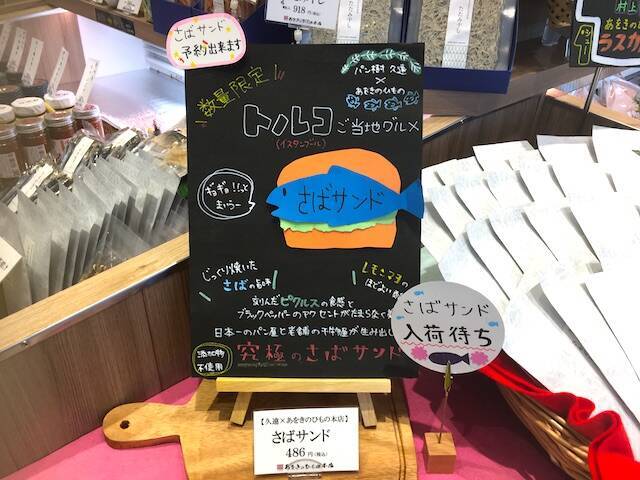 さばサンド
予約出来ます
数量限定!
パン樹 久遠
×
あをきのひもの
トルコご当地グルメ
(イスタンブール)
ギョギョ!!っと
さばサンド
じっくり焼いた
さばの旨味
レモンマヨの
ほどよい
刻んだピクルスの食感と
ブラックペッパーのアクセントがたまらなく
日本一のパン屋と老舗の干物屋が生み出し
究極のさばサンド
添加物
不使用
さばサンド
入荷待ち
【久遠×あをきのひもの本店】
さばサンド
486円(税込)
あをきのひもの本店
918円
村上